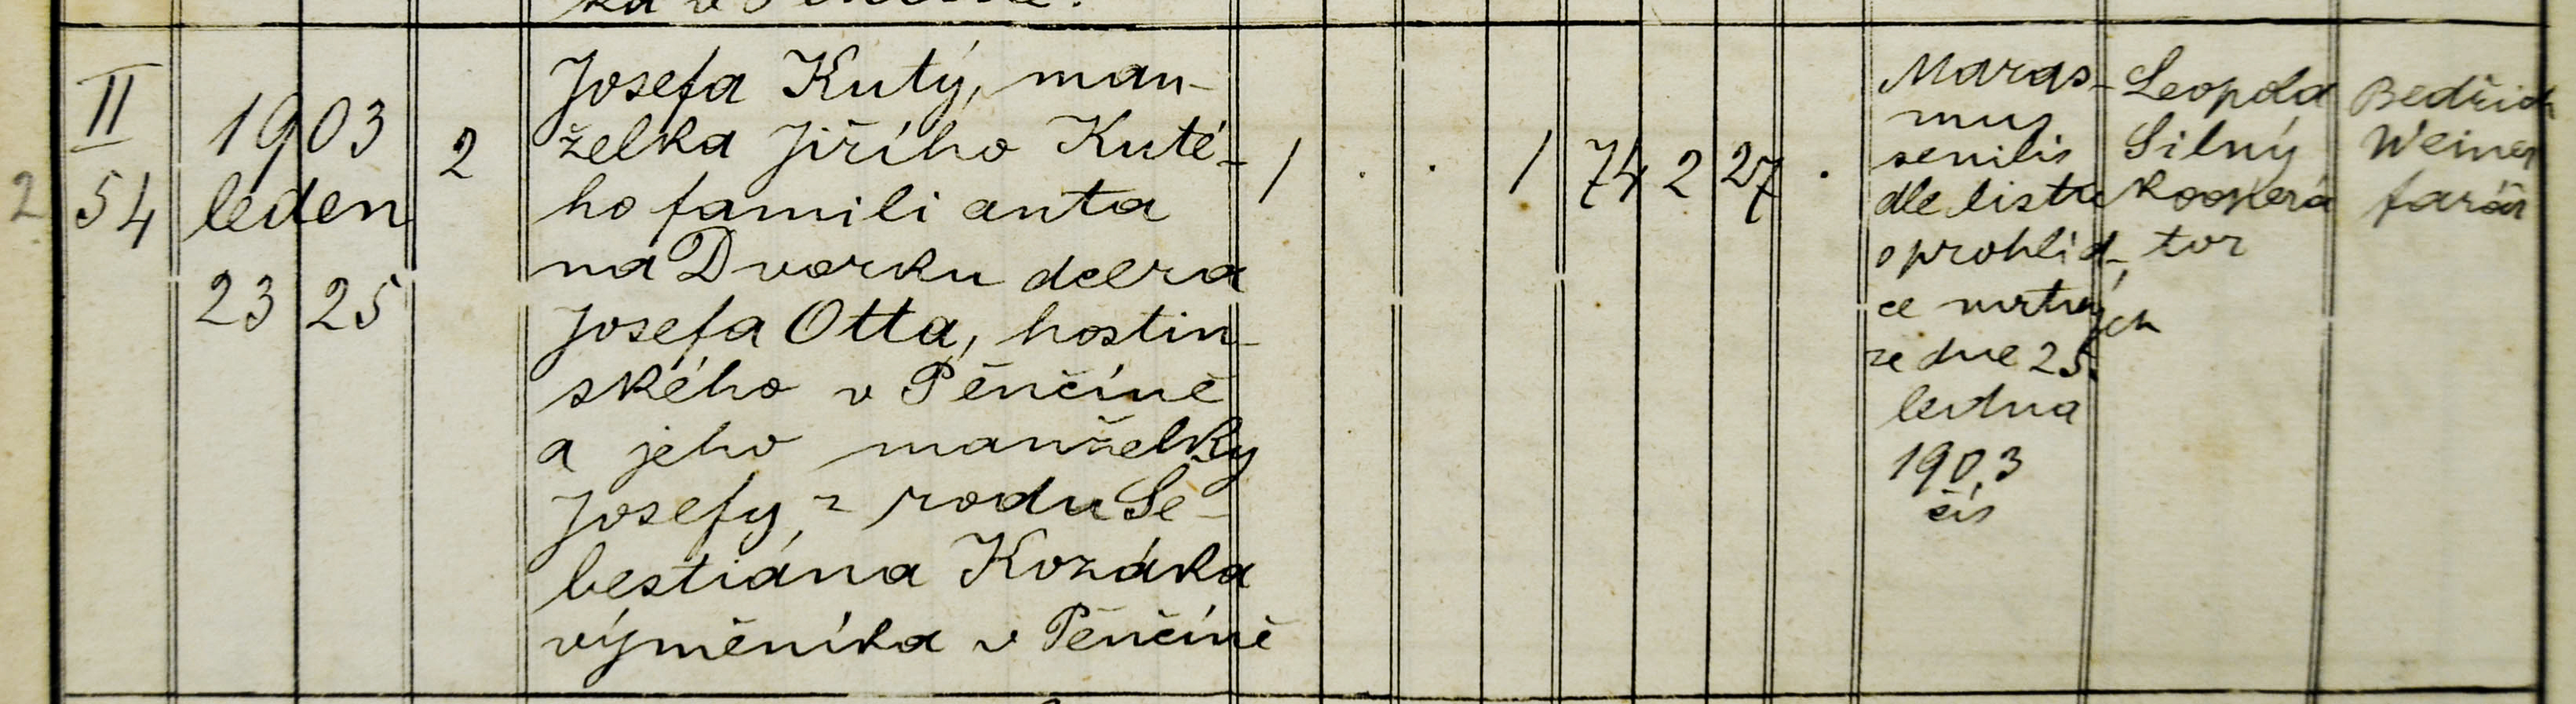 II
1903
2 54 leden 2
23 25
Josefa Kutý, man-
želka Jiřího Kuté-
ho familianta
na Dvorku dcera
Josefa Otta, hostin-
ského v Pěnčíně
a jeho manželky
Josefy z rodu Še-
bestiána Kozáka
výměníka v Pěnčíně
1 . . 1 74 2 27 .
Maras-
mus
senilis
dle listu
o prohlíd-
ce mrtvých
ze dne 25.
ledna
1903
čís
Leopold
Silný
kooperá
tor
Bedřich
Weiner
farář